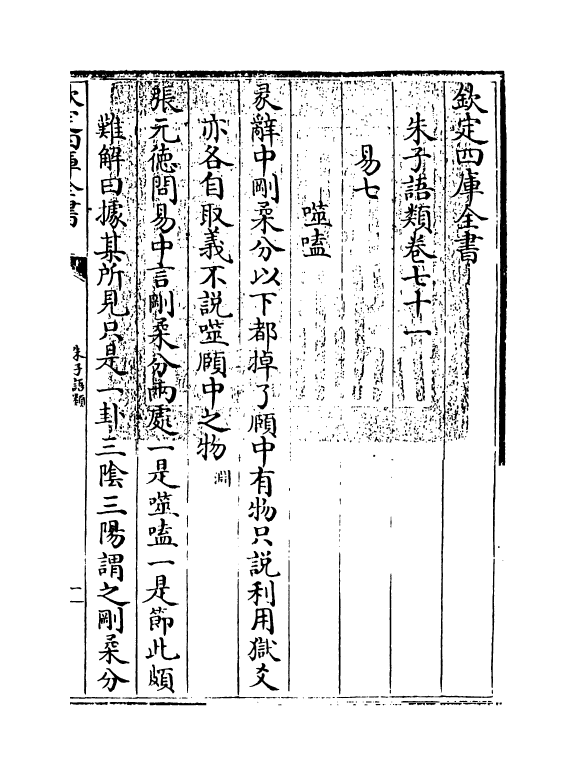 欽定四庫全書
朱子語類卷七十一
易七
噬嗑
彖辭中剛柔分以下都掉了頤中有物只說利用獄爻
亦各自取義不說噬頤中之物淵
張元德問易中言剛柔分兩處一是噬嗑一是節此頗
難解曰據某所見只是一卦三陰三陽謂之剛柔分
欽定四庫全書
朱子語類
一